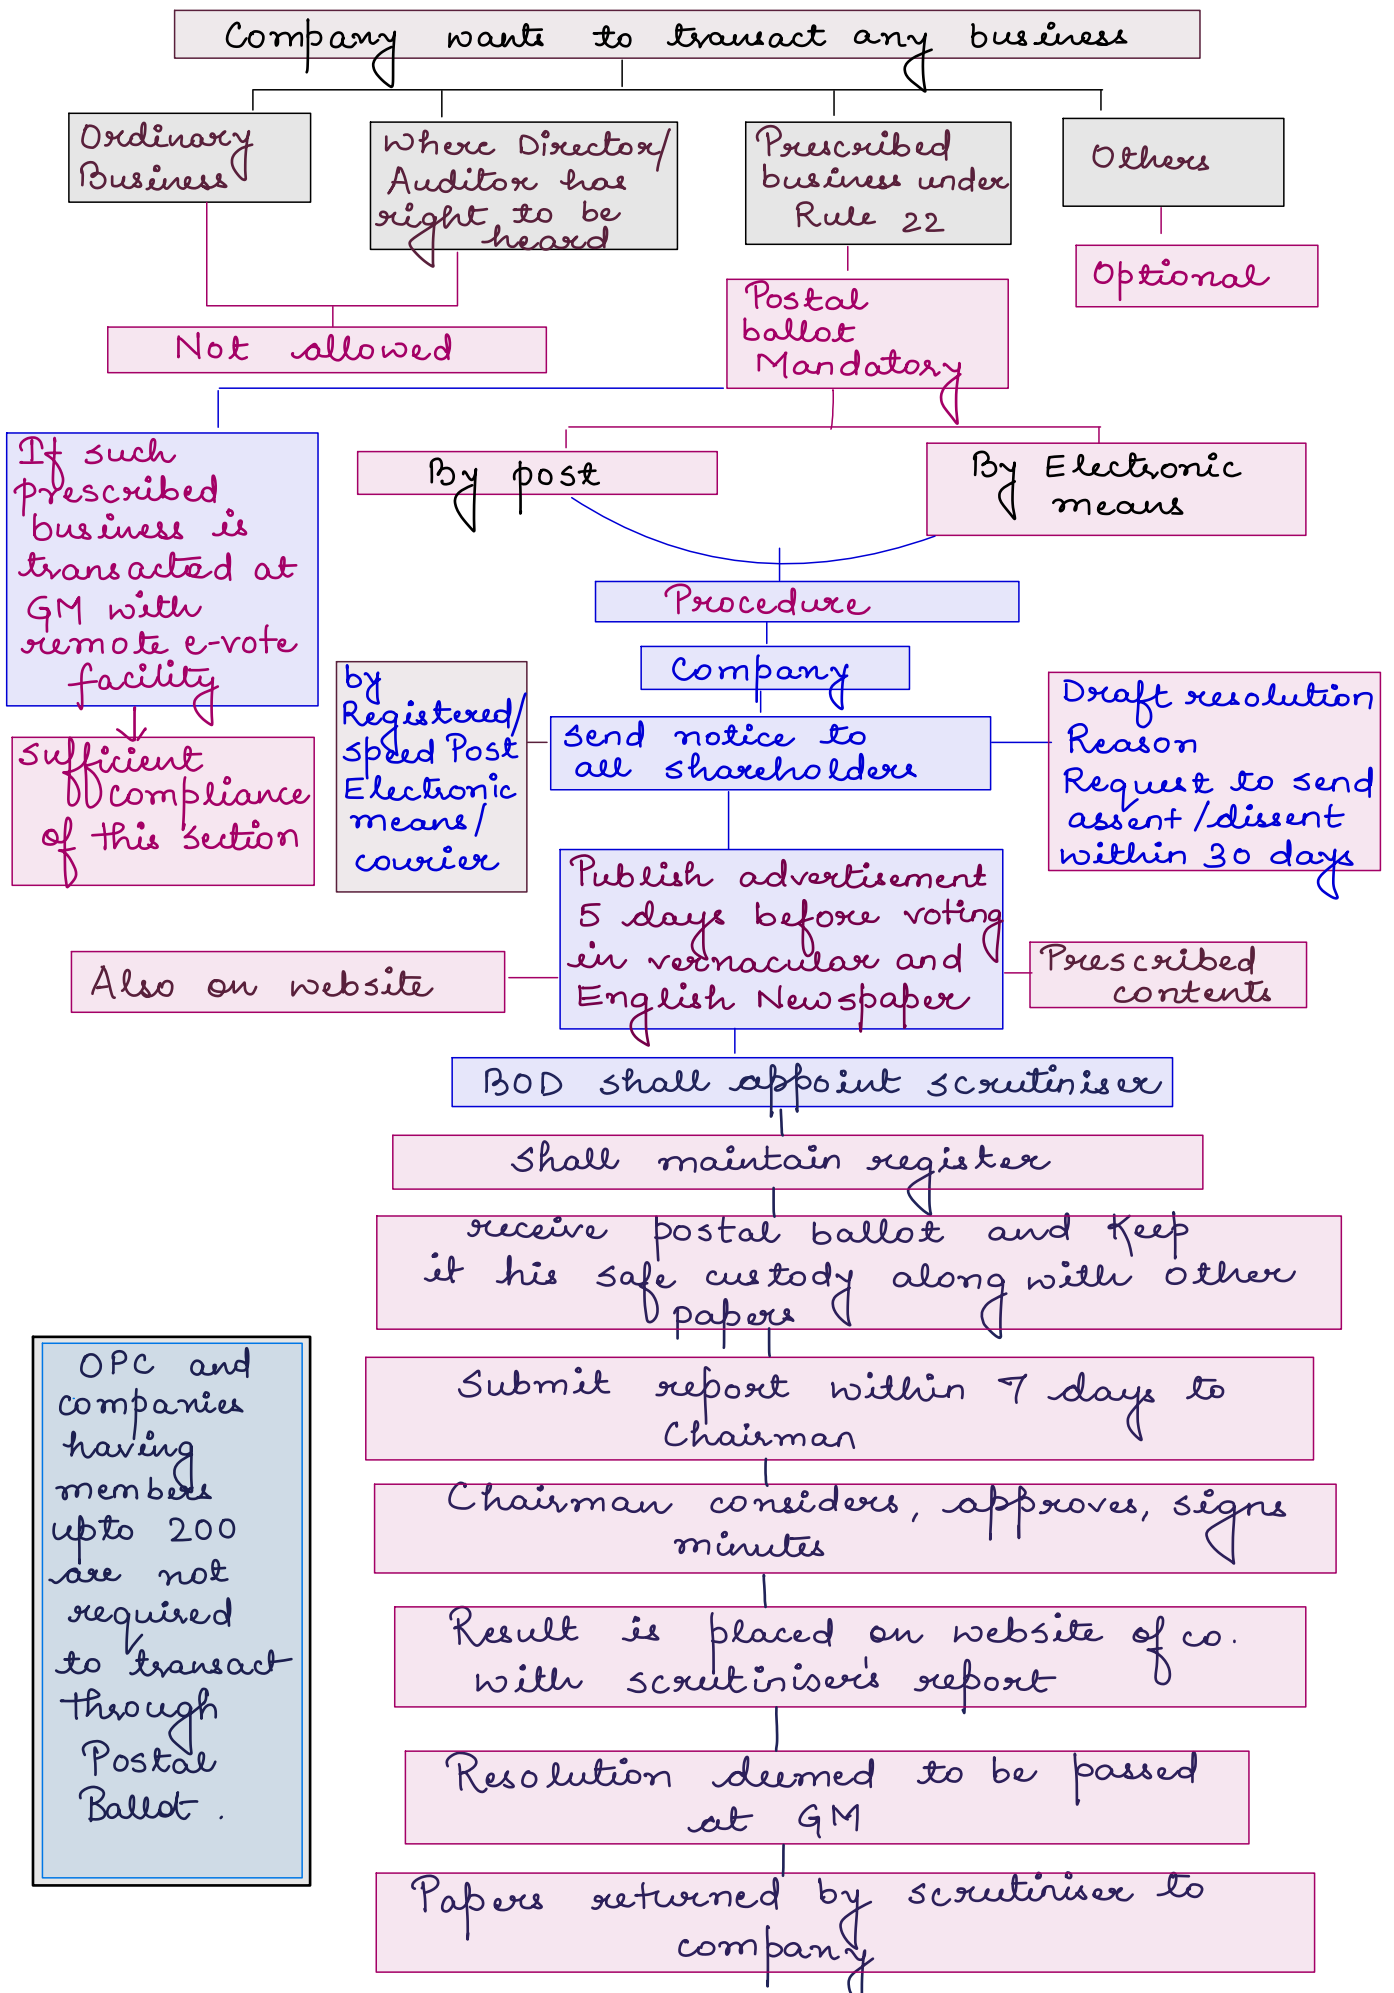 Company wants to transact any business
Ordinary
Business
Where Director/
Auditor has
right to be
heard
Prescribed
business under
Rule 22
Others
Optional
Not allowed
Postal
ballot
Mandatory
If such
prescribed
business is
transacted at
GM with
remote e-vote
facility
By post
By Electronic
means
Procedure
Company
sufficient
compliance
of this section
by
Registered/
speed Post
Electronic
means/
courier
send notice to
all shareholders
Draft resolution
Reason
Request to send
assent/dissent
within 30 days
Publish advertisement
5 days before voting
in vernacular and
English Newspaper
Also on website
Prescribed
contents
BOD shall appoint scrutiniser
Shall maintain register
receive postal ballot and Keep
it his safe custody along with other
papers
Submit report within 7 days to
Chairman
Chairman considers, approves, signs
minutes
Result is placed on website of co.
with scrutiniser's report
Resolution deemed to be passed
at GM
Papers returned by scrutiniser to
company
OPC and
companies
having
members
upto 200
are not
required
to transact
through
Postal
Ballot.